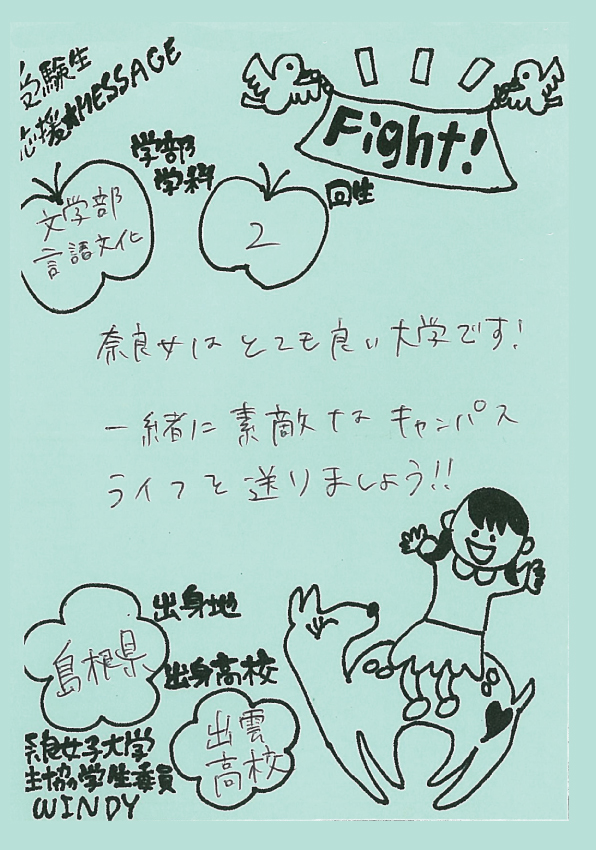 受験生
応援★MESSAGE
Fight!
学部
学科
文学部
言語文化
2
回生
奈良女はとても良い大学です!
一緒に素敵なキャンパス
ライフを送りましょう!!
出身地
島根県
出身高校
出雲
高校
奈良女子大学
生協学生委員
WINDY